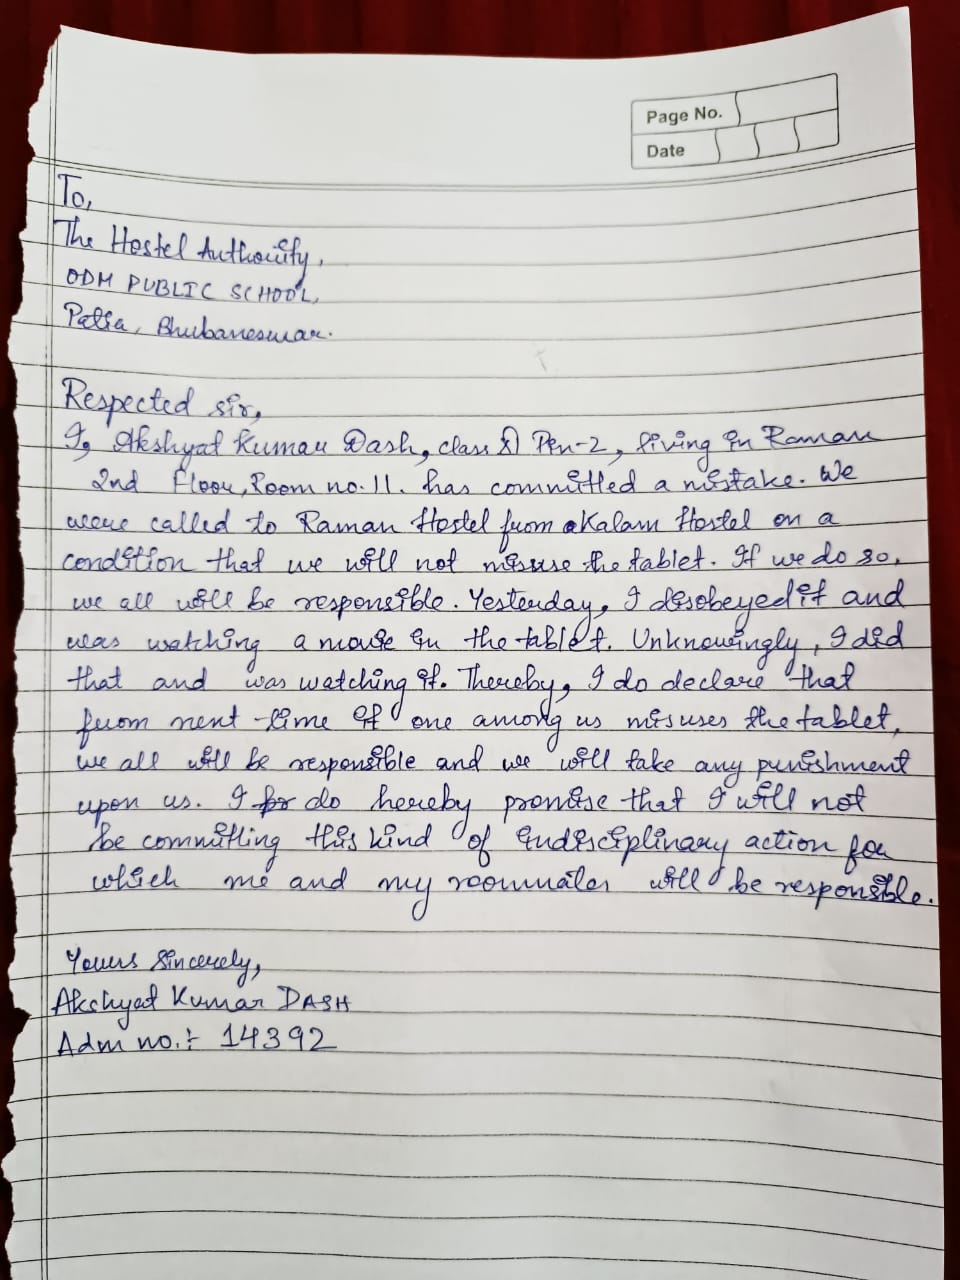 Page No.
Date
To,
The Hostel Authority,
ODM PUBLIC SCHOOL,
Patia, Bhubaneswar.
Respected sir,
I, Akshyat Kumar Dash, class XI Pen-2, living in Raman
2nd Floor, Room no. 11. has committed a mistake. We
were called to Raman Hostel from Kalam Hostel on a
condition that we will not misuse the tablet. If we do so,
we all will be responsible. Yesterday, I disobeyed it and
was watching a movie in the tablet. Unknowingly, I did
that and was watching it. Thereby, I do declare that
from next time if one among us misuses the tablet,
we all will be responsible and we will take any punishment
upon us. I do hereby promise that I will not
be committing this kind of indisciplinary action for
which me and my roommates will be responsible.
Yours Sincerely,
Akshyat Kumar DASH
Adm no.:- 14392